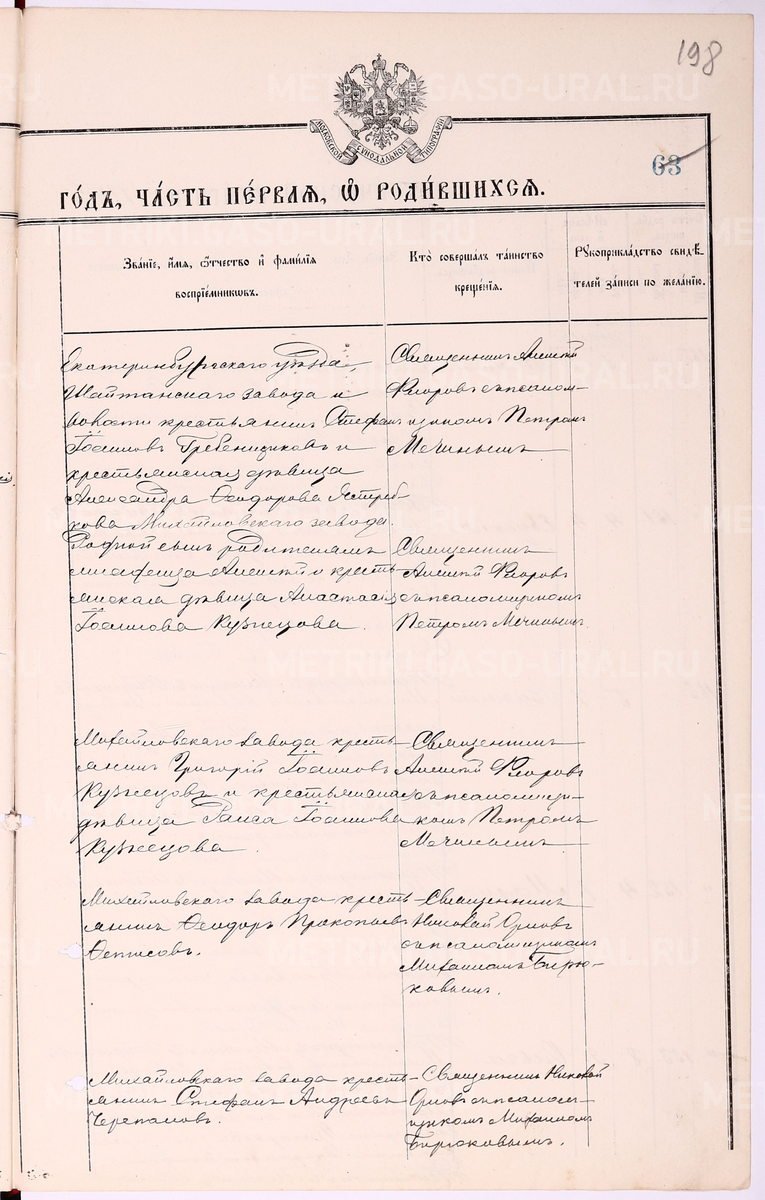 198
МОСКОВСКОЙ СѴНОДАЛЬНОЙ ТИПОГРАФІИ
63
ГО́ДЪ, ЧА́СТЬ ПЕ́РВАЯ, Ѽ РОДИ́ВШИХСЯ.
Зва́нїе, и́мѧ, ѻ҆́тчество и҆ фами́лїѧ
воспрїе́мникѡвъ.
Кто̀ соверша́лъ та́инство
креще́нїѧ.
Рꙋкоприкла́дство свидѣ́-
телей за́писи по жела́нїю.
Екатеринбургскаго уѣзда,
Шайтанскаго завода и
волости крестьянинъ Стефанъ
Іоанновъ Гребенщиковъ и
крестьянская дѣвица
Александра Ѳеодорова Ястреб-
кова Михайловскаго завода.
Священникъ Алексій
Флоровъ съ псалом-
щикомъ Петромъ
Мечинымъ
Родной сынъ родителямъ
младенца Алексій и кресть-
янская дѣвица Анастасія
Іоаннова Кузнецова.
Священникъ
Алексій Флоровъ
съ псаломщикомъ
Петромъ Мечинымъ.
Михайловскаго завода кресть-
янинъ Григорій Іоанновъ
Кузнецовъ и крестьянская
дѣвица Раиса Іоаннова
Кузнецова.
Священникъ
Алексій Флоровъ
съ псаломщи-
комъ Петромъ
Мечинымъ
Михайловскаго завода кресть-
янинъ Ѳеодоръ Прокопьевъ
Священникъ
Николай Орловъ
съ псаломщикомъ
Михаиломъ Бирю-
ковымъ.
Михайловскаго завода кресть-
янинъ Стефанъ Андреевъ
Черепановъ.
Священникъ Николай
Орловъ съ псалом-
щикомъ Михаиломъ
Бирюковымъ.
METRIK.GASO-URAL.RU